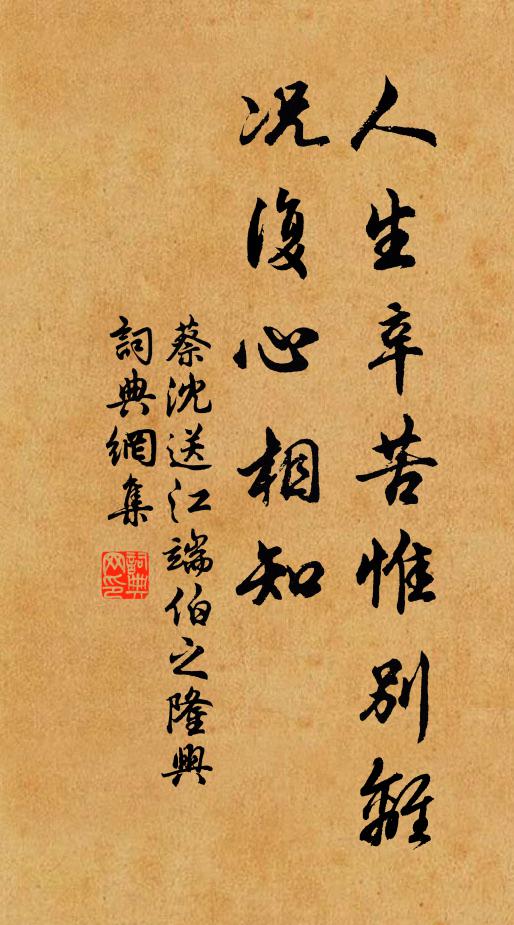 人生辛苦惟別離
況復心相知
蔡沈送江端伯之隆興
詞典網集
詞典
网印